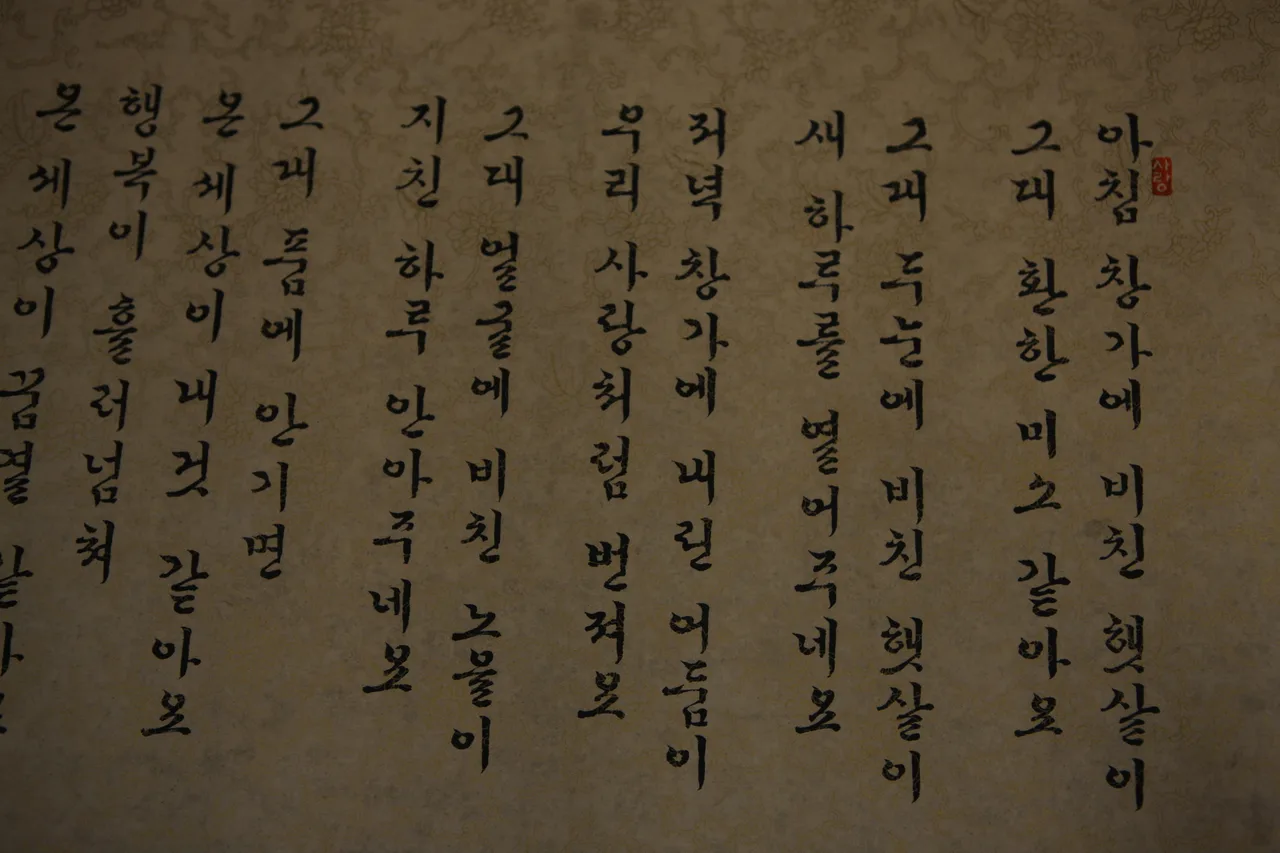 사랑
아침 창가에 비친 햇살이
그대 환한 미소 같아요
그대 두눈에 비친 햇살이
새 하루를 열어주네요
저녁 창가에 내린 어둠이
우리 사랑처럼 번져요
그대 얼굴에 비친 노을이
지친 하루 안아주네요
그대 품에 안기면
온 세상이 내것 같아요
행복이 흘러넘쳐
온 세상이